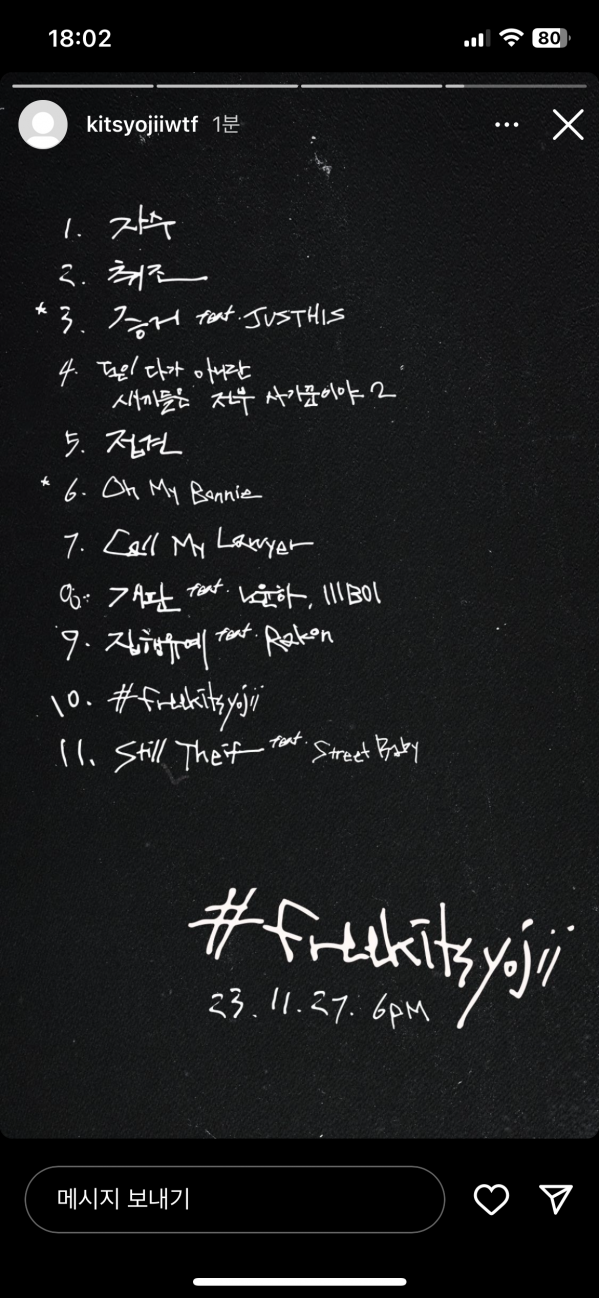 18:02
80
kitsyojiiwtf 1분
1. 자수
2. 취조
* 3. 증거 feat. JUSTHIS
4. 돈이 다가 아니란
새끼들은 전부 사기꾼이야 2
5. 접견
* 6. Oh My Bonnie
7. Call My Lawyer
8. 재판 feat. 노윤하, lllBOI
9. 집행유예 feat. Rakon
10. #freekitsyojii
11. Still Theif feat. Street Baby
#freekitsyojii
23.11.27. 6PM
메시지 보내기